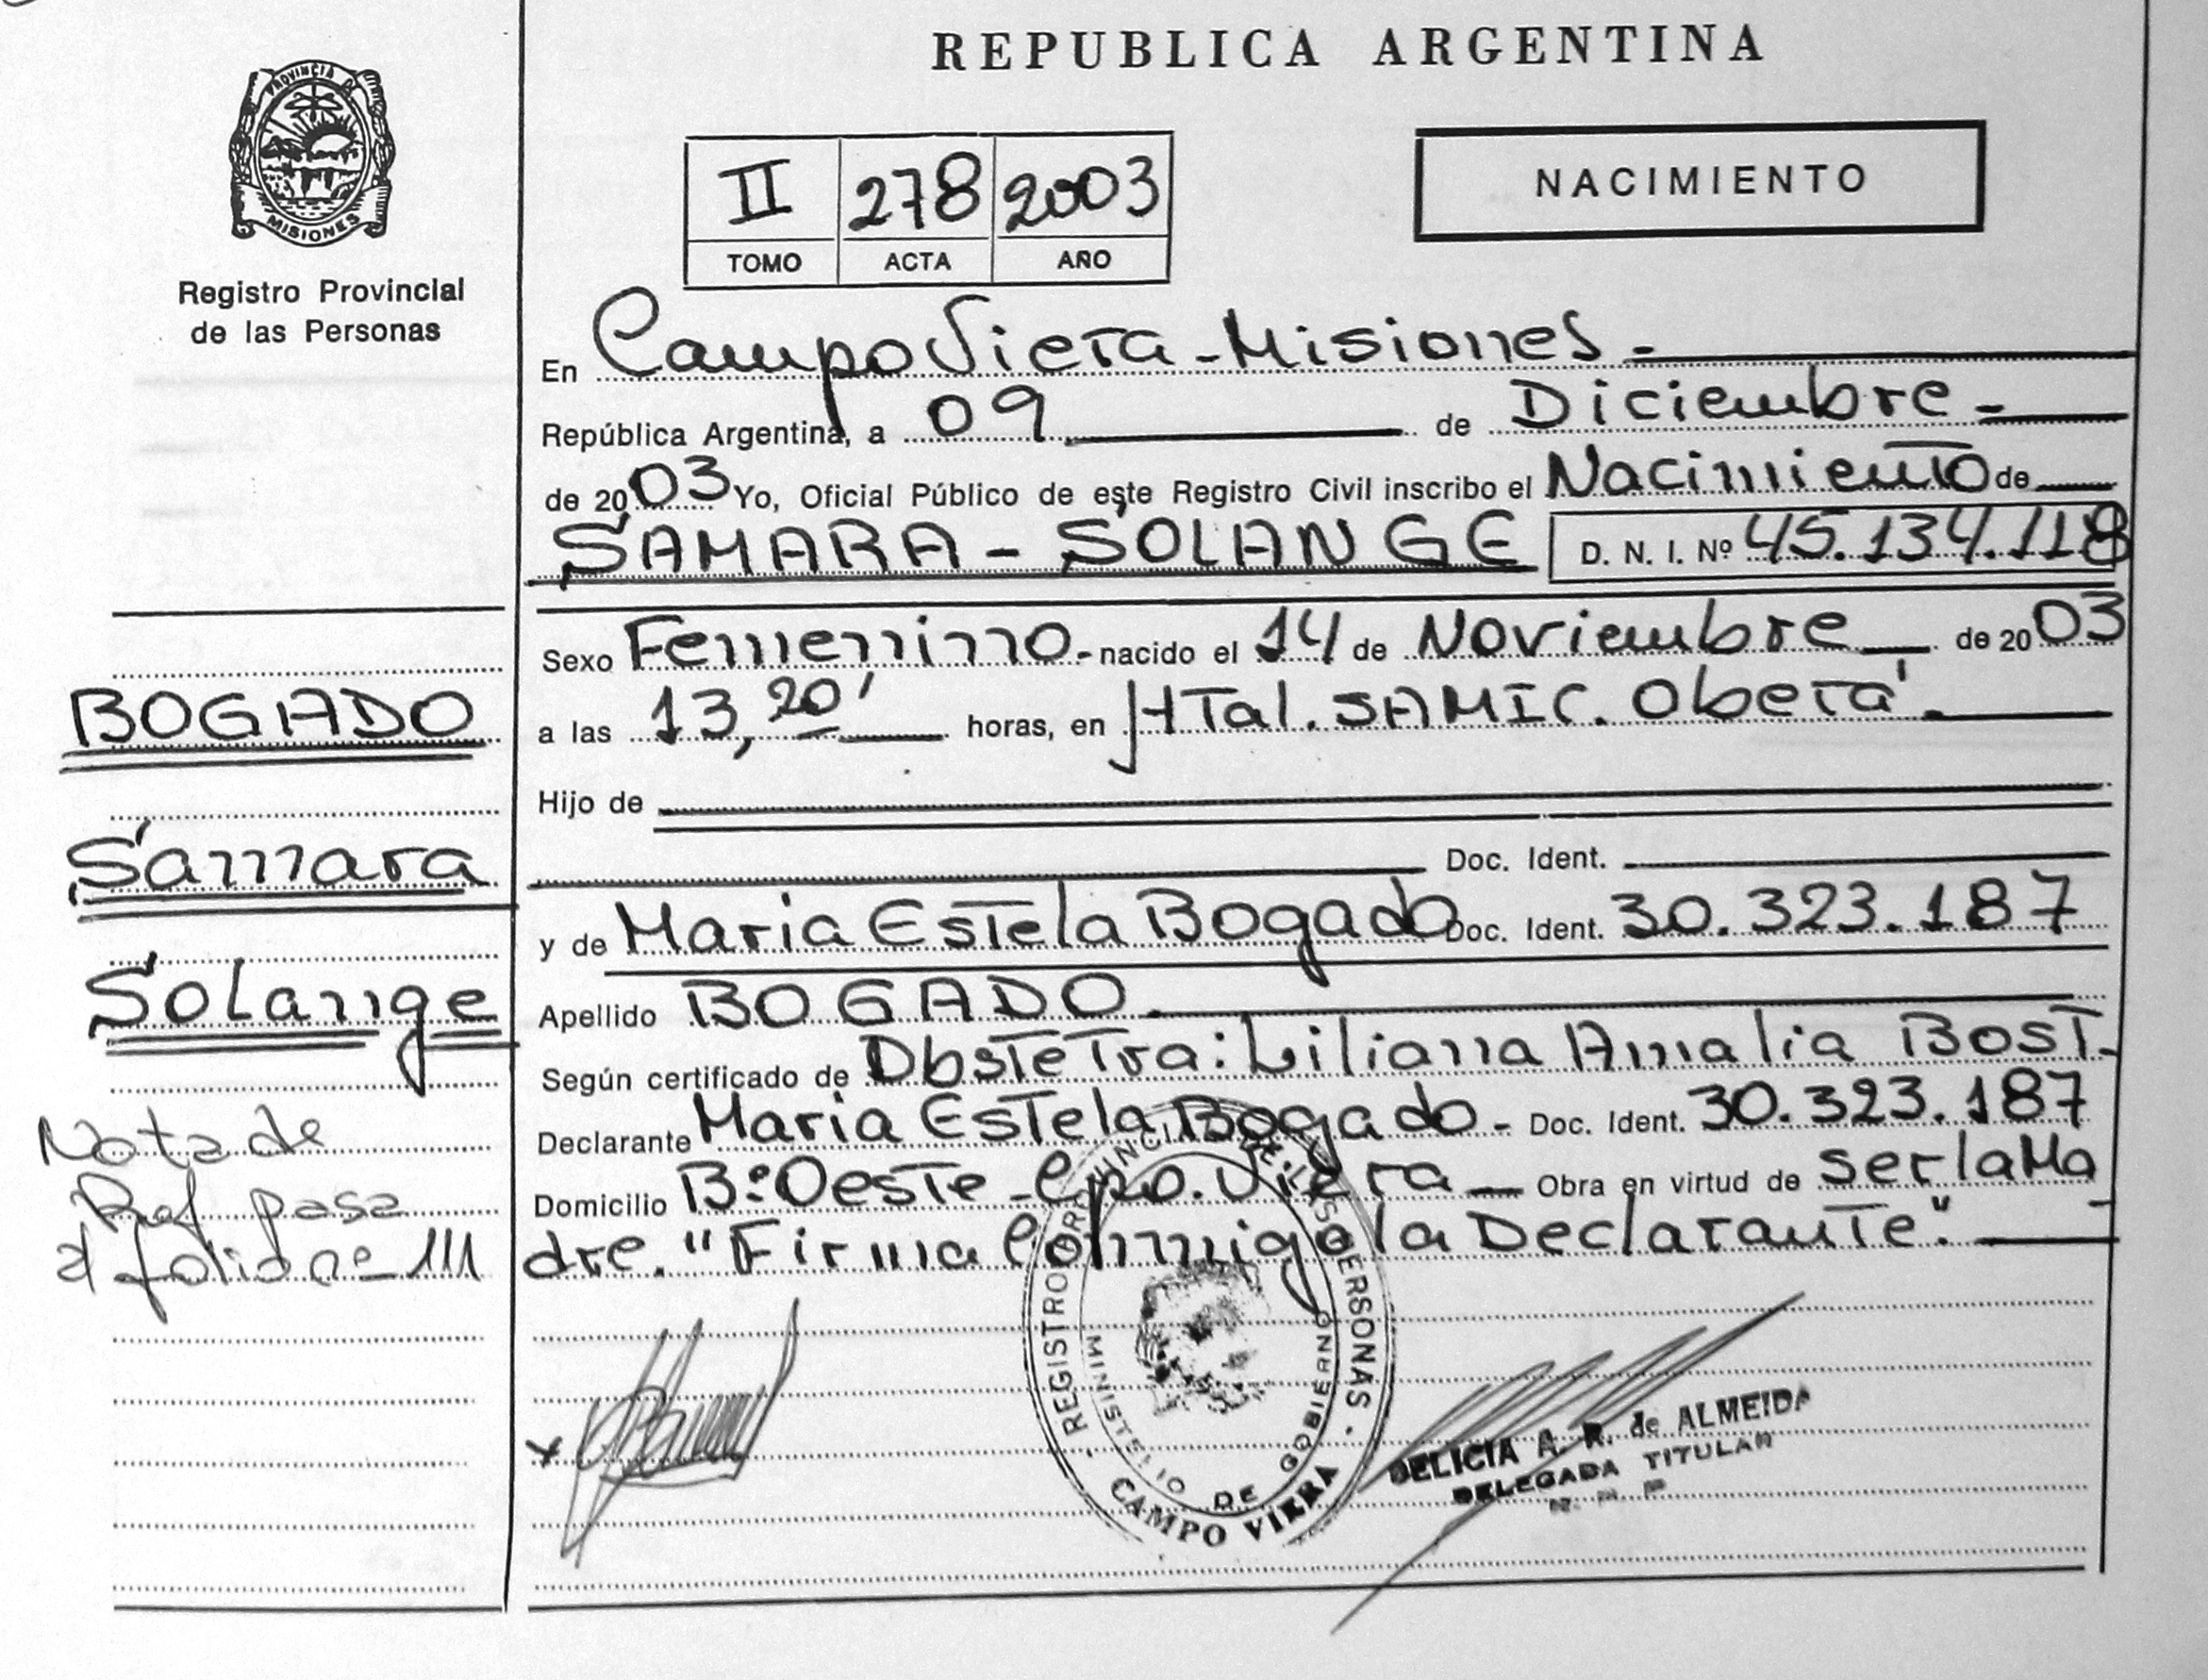 PROVINCIA DE
MISIONES
Registro Provincial
de las Personas
BOGADO
Samara
Solange
Nota de
Ref pasa
al folio nº 111
REPUBLICA ARGENTINA
II 278 2003
TOMO ACTA AÑO
NACIMIENTO
En Campo Viera - Misiones -
República Argentina, a 09 de Diciembre -
de 2003 Yo, Oficial Público de este Registro Civil inscribo el Nacimiento de
SAMARA - SOLANGE D. N. I. Nº 45.134.118
Sexo Femenino - nacido el 14 de Noviembre de 2003
a las 13,20' horas, en HTal. SAMIC. Oberá.
Hijo de
Doc. Ident.
y de Maria Estela Bogado Doc. Ident. 30.323.187
Apellido BOGADO.
Según certificado de Obstetra: Liliana Amalia Bost.
Declarante Maria Estela Bogado - Doc. Ident. 30.323.187
Domicilio Bº Oeste - Cpo. Viera - Obra en virtud de ser la Ma
dre. "Firma Conmigo la Declarante".
REGISTRO PROVINCIAL DE LAS PERSONAS
MINISTERIO DE GOBIERNO
CAMPO VIERA
DELICIA A. R. de ALMEIDA
DELEGADA TITULAR